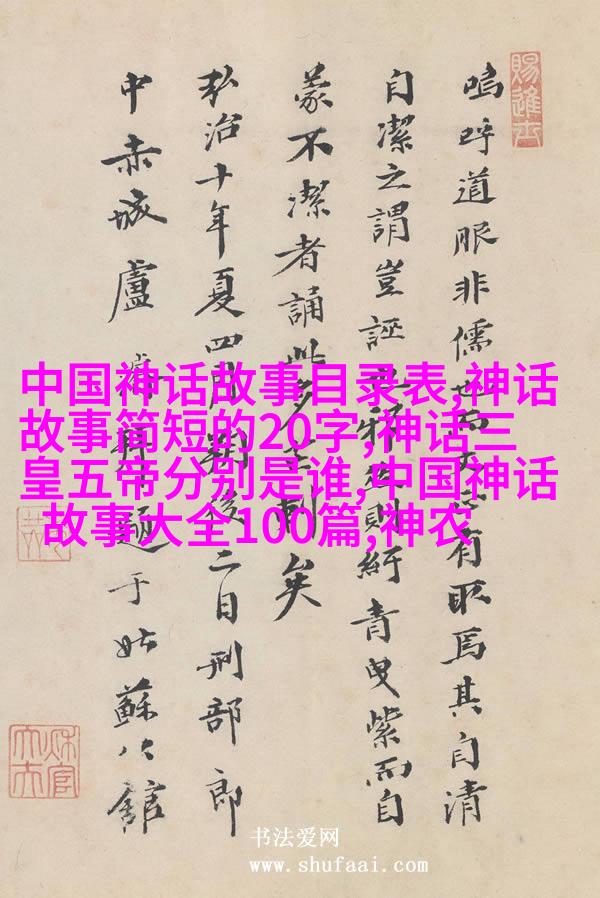 賜進士
嗚呼道眼非儒有取焉其自清
自潔之謂豈誣則紆青曳紫而自
蒙不潔者誦此制矣
弘治十年夏四月後二日刑部郎
中赤城盧題于姑蘇公館
中国神话故事目录表,神话
故事简短的20字,神话三
皇五帝分别是谁,中国神话
故事大全100篇,神农
书法爱网
www.shufaai.com